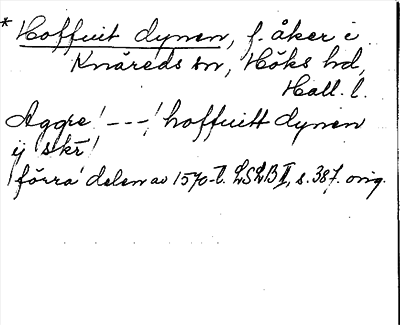 * Hoffuit dynen, f. åker i
Knäreds sn, Höks hd,
Hall. l.
Aggre! ---! hoffuitt dynen
ij skr!
förra delen av 1570-t. LSLB II, s. 387. orig.